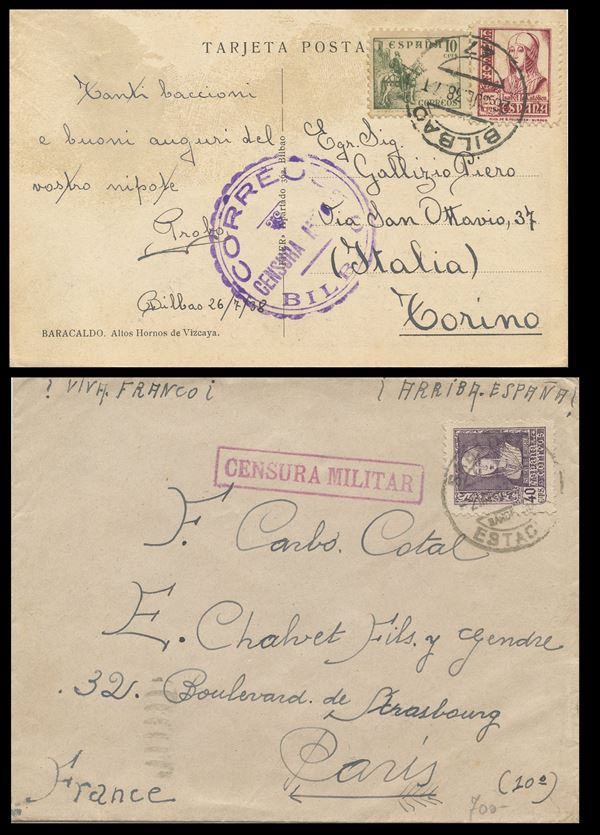 TARJETA POSTA
ESPAÑA 10 CTS
CORREOS
ESPAÑA
BILBAO
Tanti baccioni
e buoni auguri del
vostro nipote
Probo
Bilbao 26/7/38
BARACALDO. Altos Hornos de Vizcaya.
Apartado 392. Bilbao
CORREOS
CENSURA
BILB
Egr. Sig.
Gallizio Piero
Via San Ottavio, 37
(Italia)
Torino
¡ VIVA. FRANCO ¡
¡ ARRIBA. ESPAÑA ¡
CENSURA MILITAR
ESPAÑA
CORREOS
40
CTS
ESTAC
F. Carbó. Cotal
E. Chalvet Fils. y Gendre
.32. Boulevard. de Strasbourg
París
(10º)
France
700-